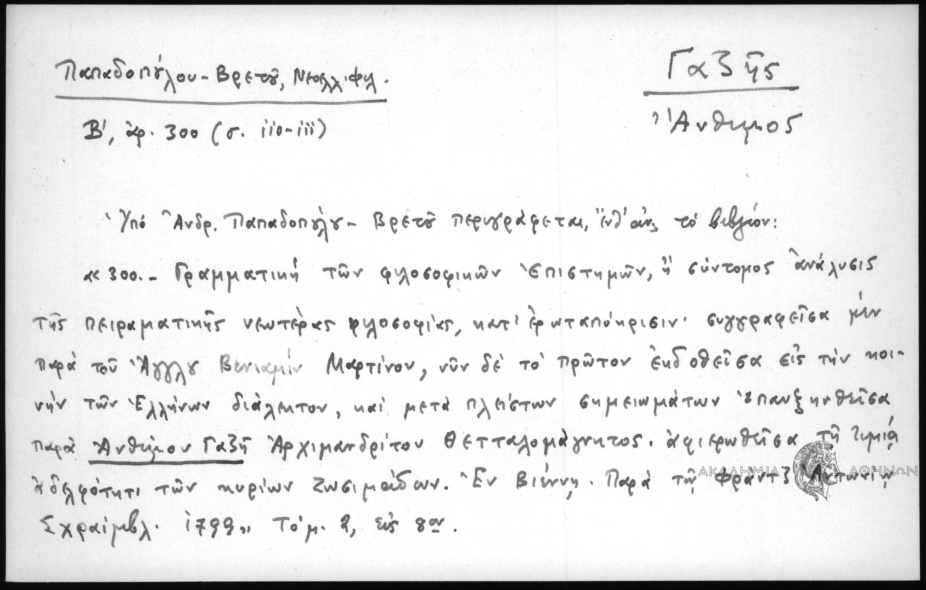 Παπαδοπούλου-Βρετοῦ, Νεοελλ. φιλ.
Γαζῆς
Ἄνθιμος
Β', ἀρ. 300 (σ. 110-111)
Ὑπὸ Ἀνδρ. Παπαδοπούλου-Βρετοῦ περιγράφεται, τὸ βιβλίον:
«300.- Γραμματικὴ τῶν φιλοσοφικῶν ἐπιστημῶν, ἢ σύντομος ἀνάλυσις
τῆς πειραματικῆς νεωτέρας φιλοσοφίας, κατ' ἐρωταπόκρισιν· συγγραφεῖσα μὲν
παρὰ τοῦ Ἄγγλου Βενιαμὶν Μαρτίνου, νῦν δὲ τὸ πρῶτον ἐκδοθεῖσα εἰς τὴν κοι-
νὴν τῶν Ἑλλήνων διάλεκτον, καὶ μετὰ πλείστων σημειωμάτων ἐπαυξηνθεῖσα
παρὰ Ἀνθίμου Γαζῆ Ἀρχιμανδρίτου Θετταλομάγνητος. ἀφιερωθεῖσα τῇ τιμίᾳ
ἀδελφότητι τῶν κυρίων Ζωσιμάδων. Ἐν Βιέννῃ. Παρὰ τῷ Φραντζ Ἀντωνίῳ
Σχραίμβλ. 1799„ Τόμ. 2, εἰς 8ον.
ΑΚΑΔΗΜΙΑ ΑΘΗΝΩΝ